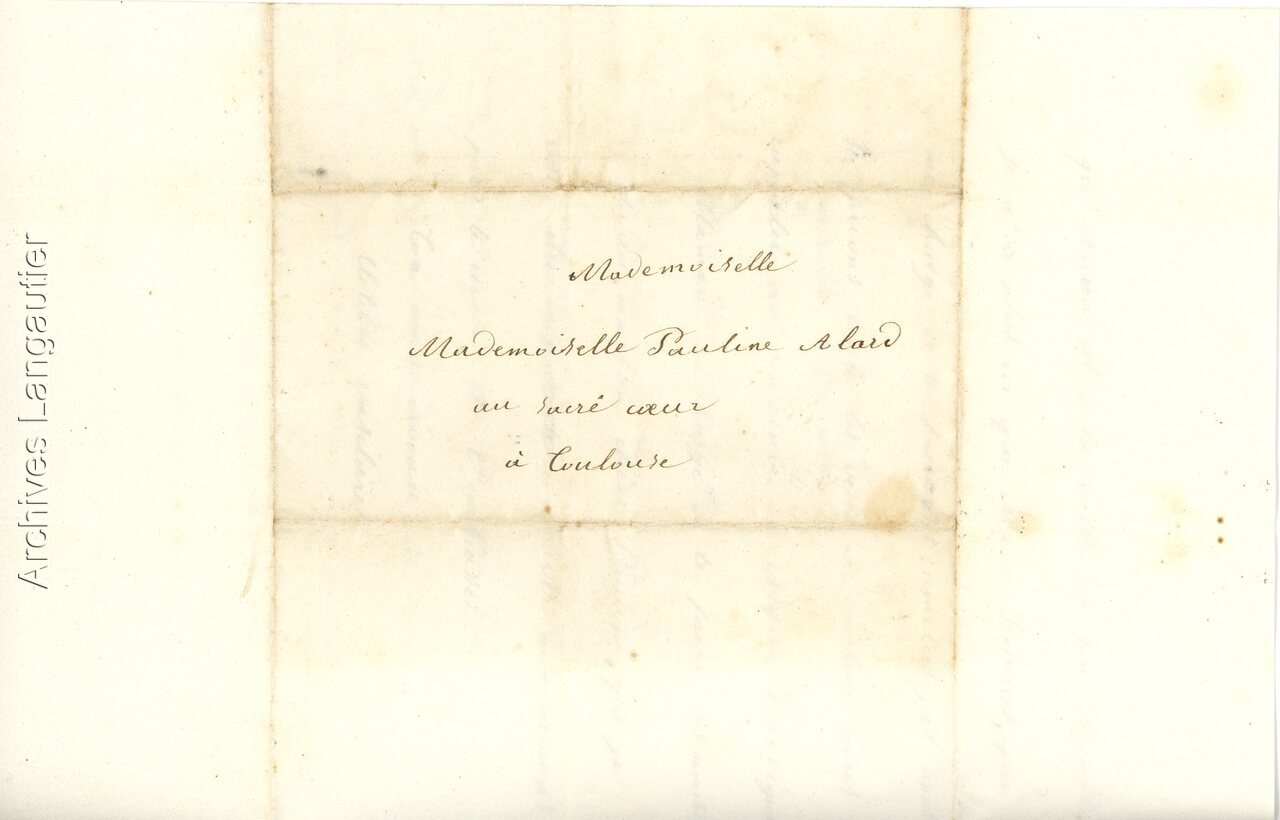 Mademoiselle
Mademoiselle Pauline Alard
au sacré cœur
à Toulouse
Archives Langautier